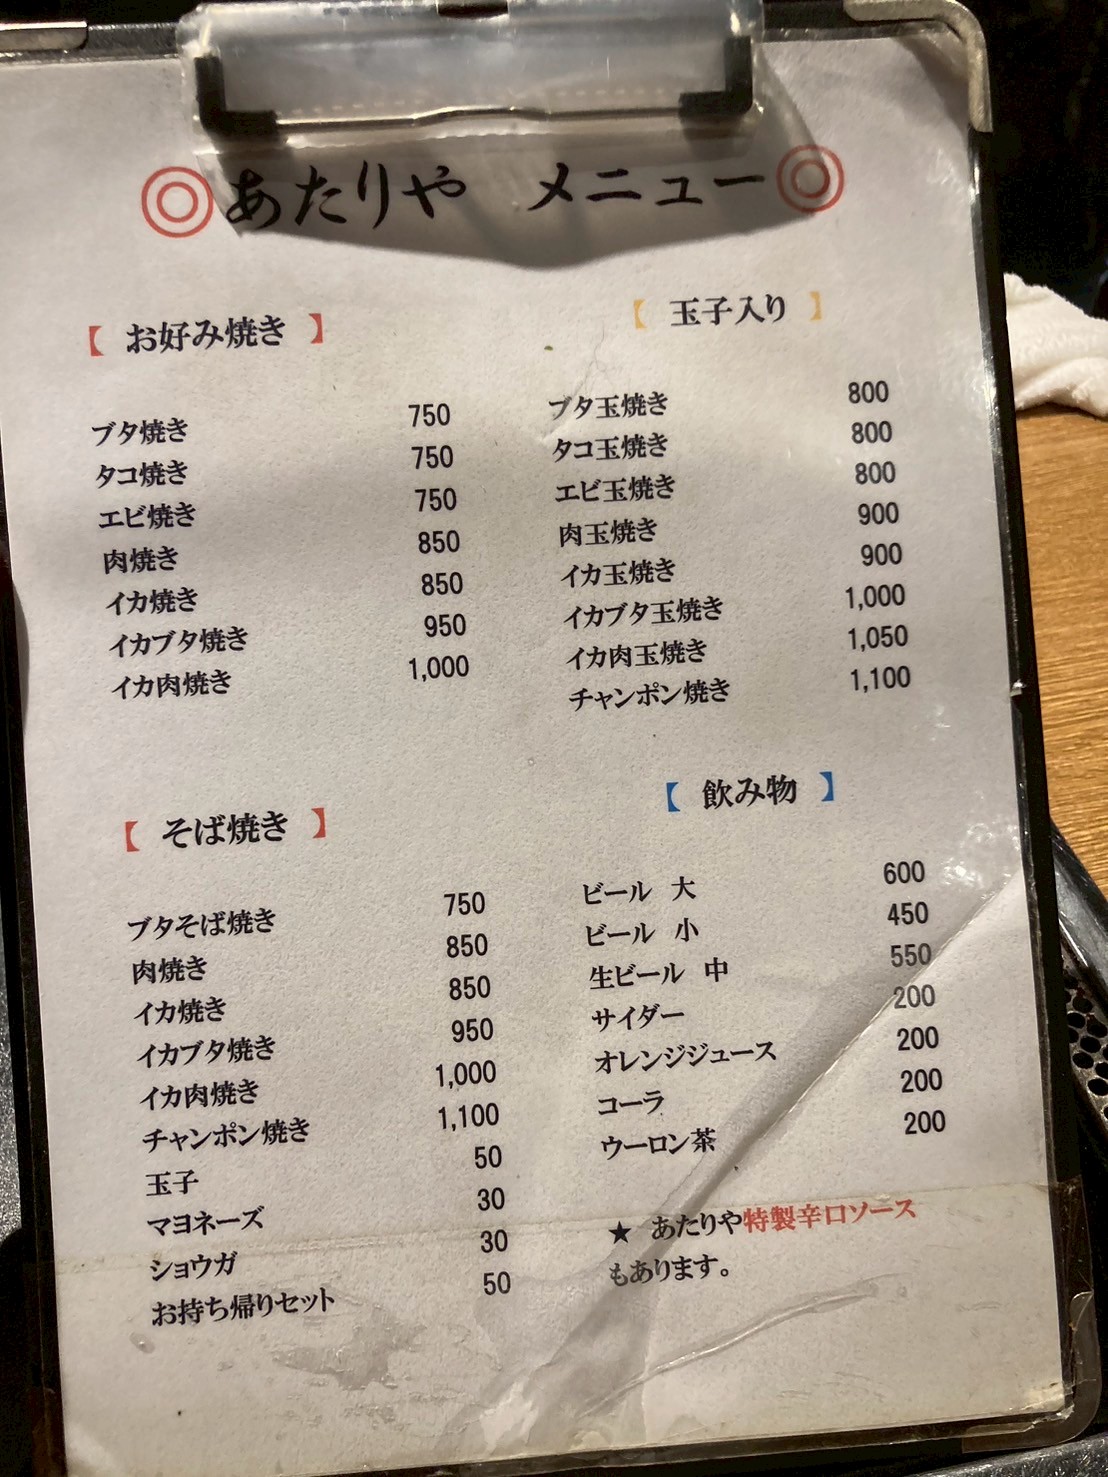 ◎あたりや メニュー◎
【 お好み焼き 】
ブタ焼き 750
タコ焼き 750
エビ焼き 750
肉焼き 850
イカ焼き 850
イカブタ焼き 950
イカ肉焼き 1,000
【 玉子入り 】
ブタ玉焼き 800
タコ玉焼き 800
エビ玉焼き 800
肉玉焼き 900
イカ玉焼き 900
イカブタ玉焼き 1,000
イカ肉玉焼き 1,050
チャンポン焼き 1,100
【 そば焼き 】
ブタそば焼き 750
肉焼き 850
イカ焼き 850
イカブタ焼き 950
イカ肉焼き 1,000
チャンポン焼き 1,100
玉子 50
マヨネーズ 30
ショウガ 30
お持ち帰りセット 50
【 飲み物 】
ビール 大 600
ビール 小 450
生ビール 中 550
サイダー 200
オレンジジュース 200
コーラ 200
ウーロン茶 200
★ あたりや特製辛口ソース
もあります。